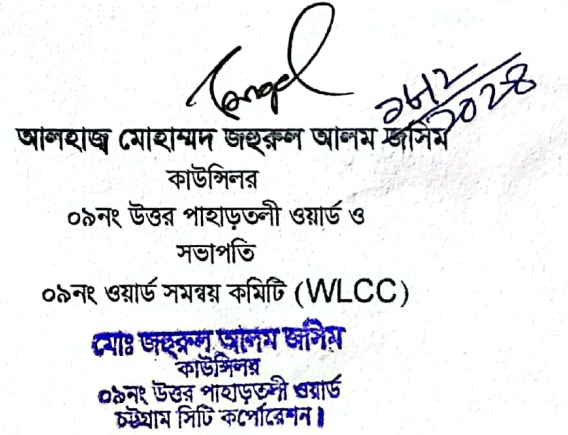 আলহাজ্ব মোহাম্মদ জহুরুল আলম জসিম
কাউন্সিলর
০৯নং উত্তর পাহাড়তলী ওয়ার্ড ও
সভাপতি
০৯নং ওয়ার্ড সমন্বয় কমিটি (WLCC)
মোঃ জহুরুল আলম জসিম
কাউন্সিলর
০৯নং উত্তর পাহাড়তলী ওয়ার্ড
চট্টগ্রাম সিটি কর্পোরেশন।